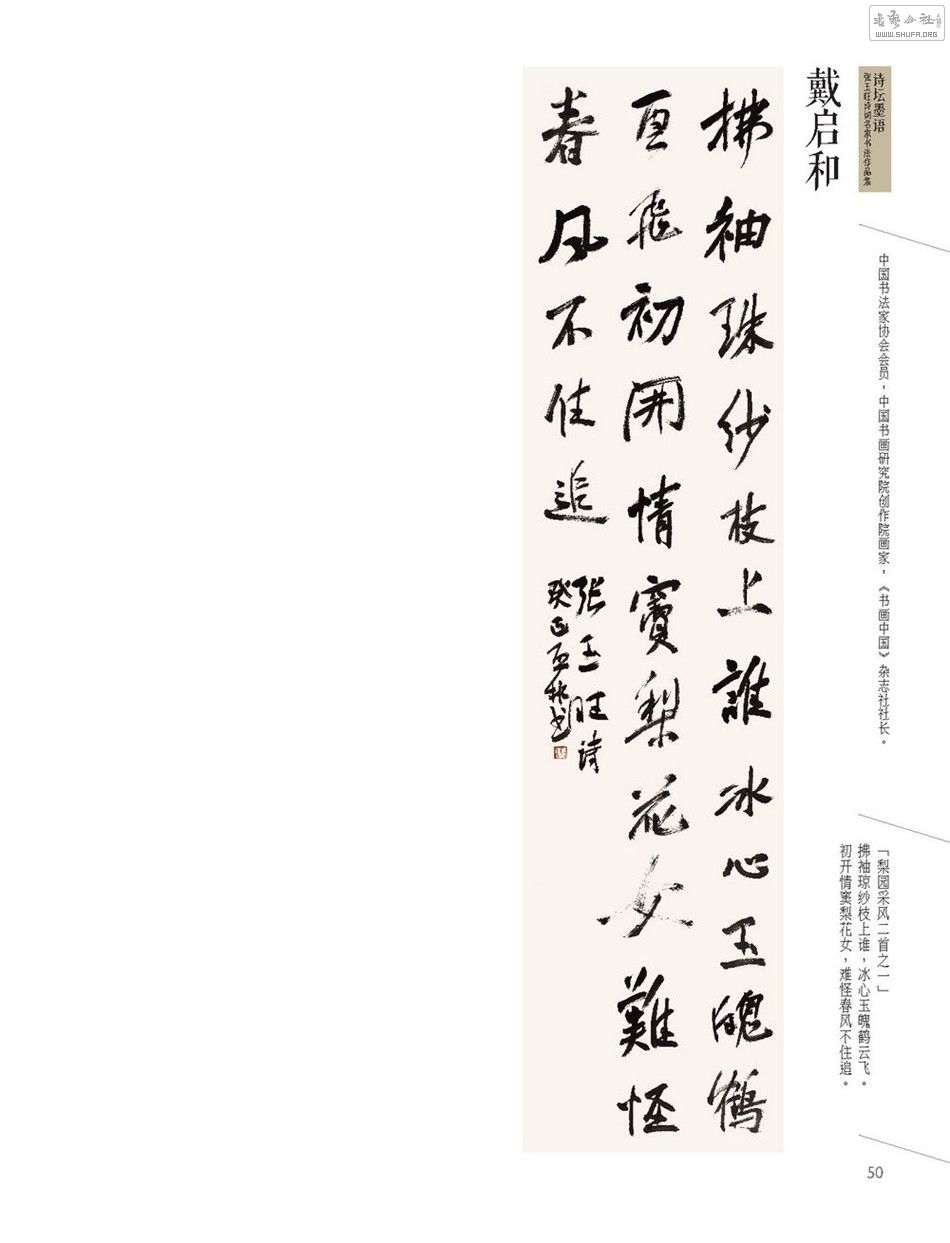 书艺公社
WWW.SHUFA.ORG
诗坛墨语
张玉旺诗词名家书法作品集
戴启和
中国书法家协会会员，中国书画研究院创作院画家，《书画中国》杂志社社长。
「梨园采风二首之一」
拂袖琼纱枝上谁，冰心玉魄鹤云飞。
初开情窦梨花女，难怪春风不住追。
拂袖珠纱枝上誰冰心玉魄鶴
飛初開情竇梨花女難怪
春風不住追
张玉旺诗
癸巳
50